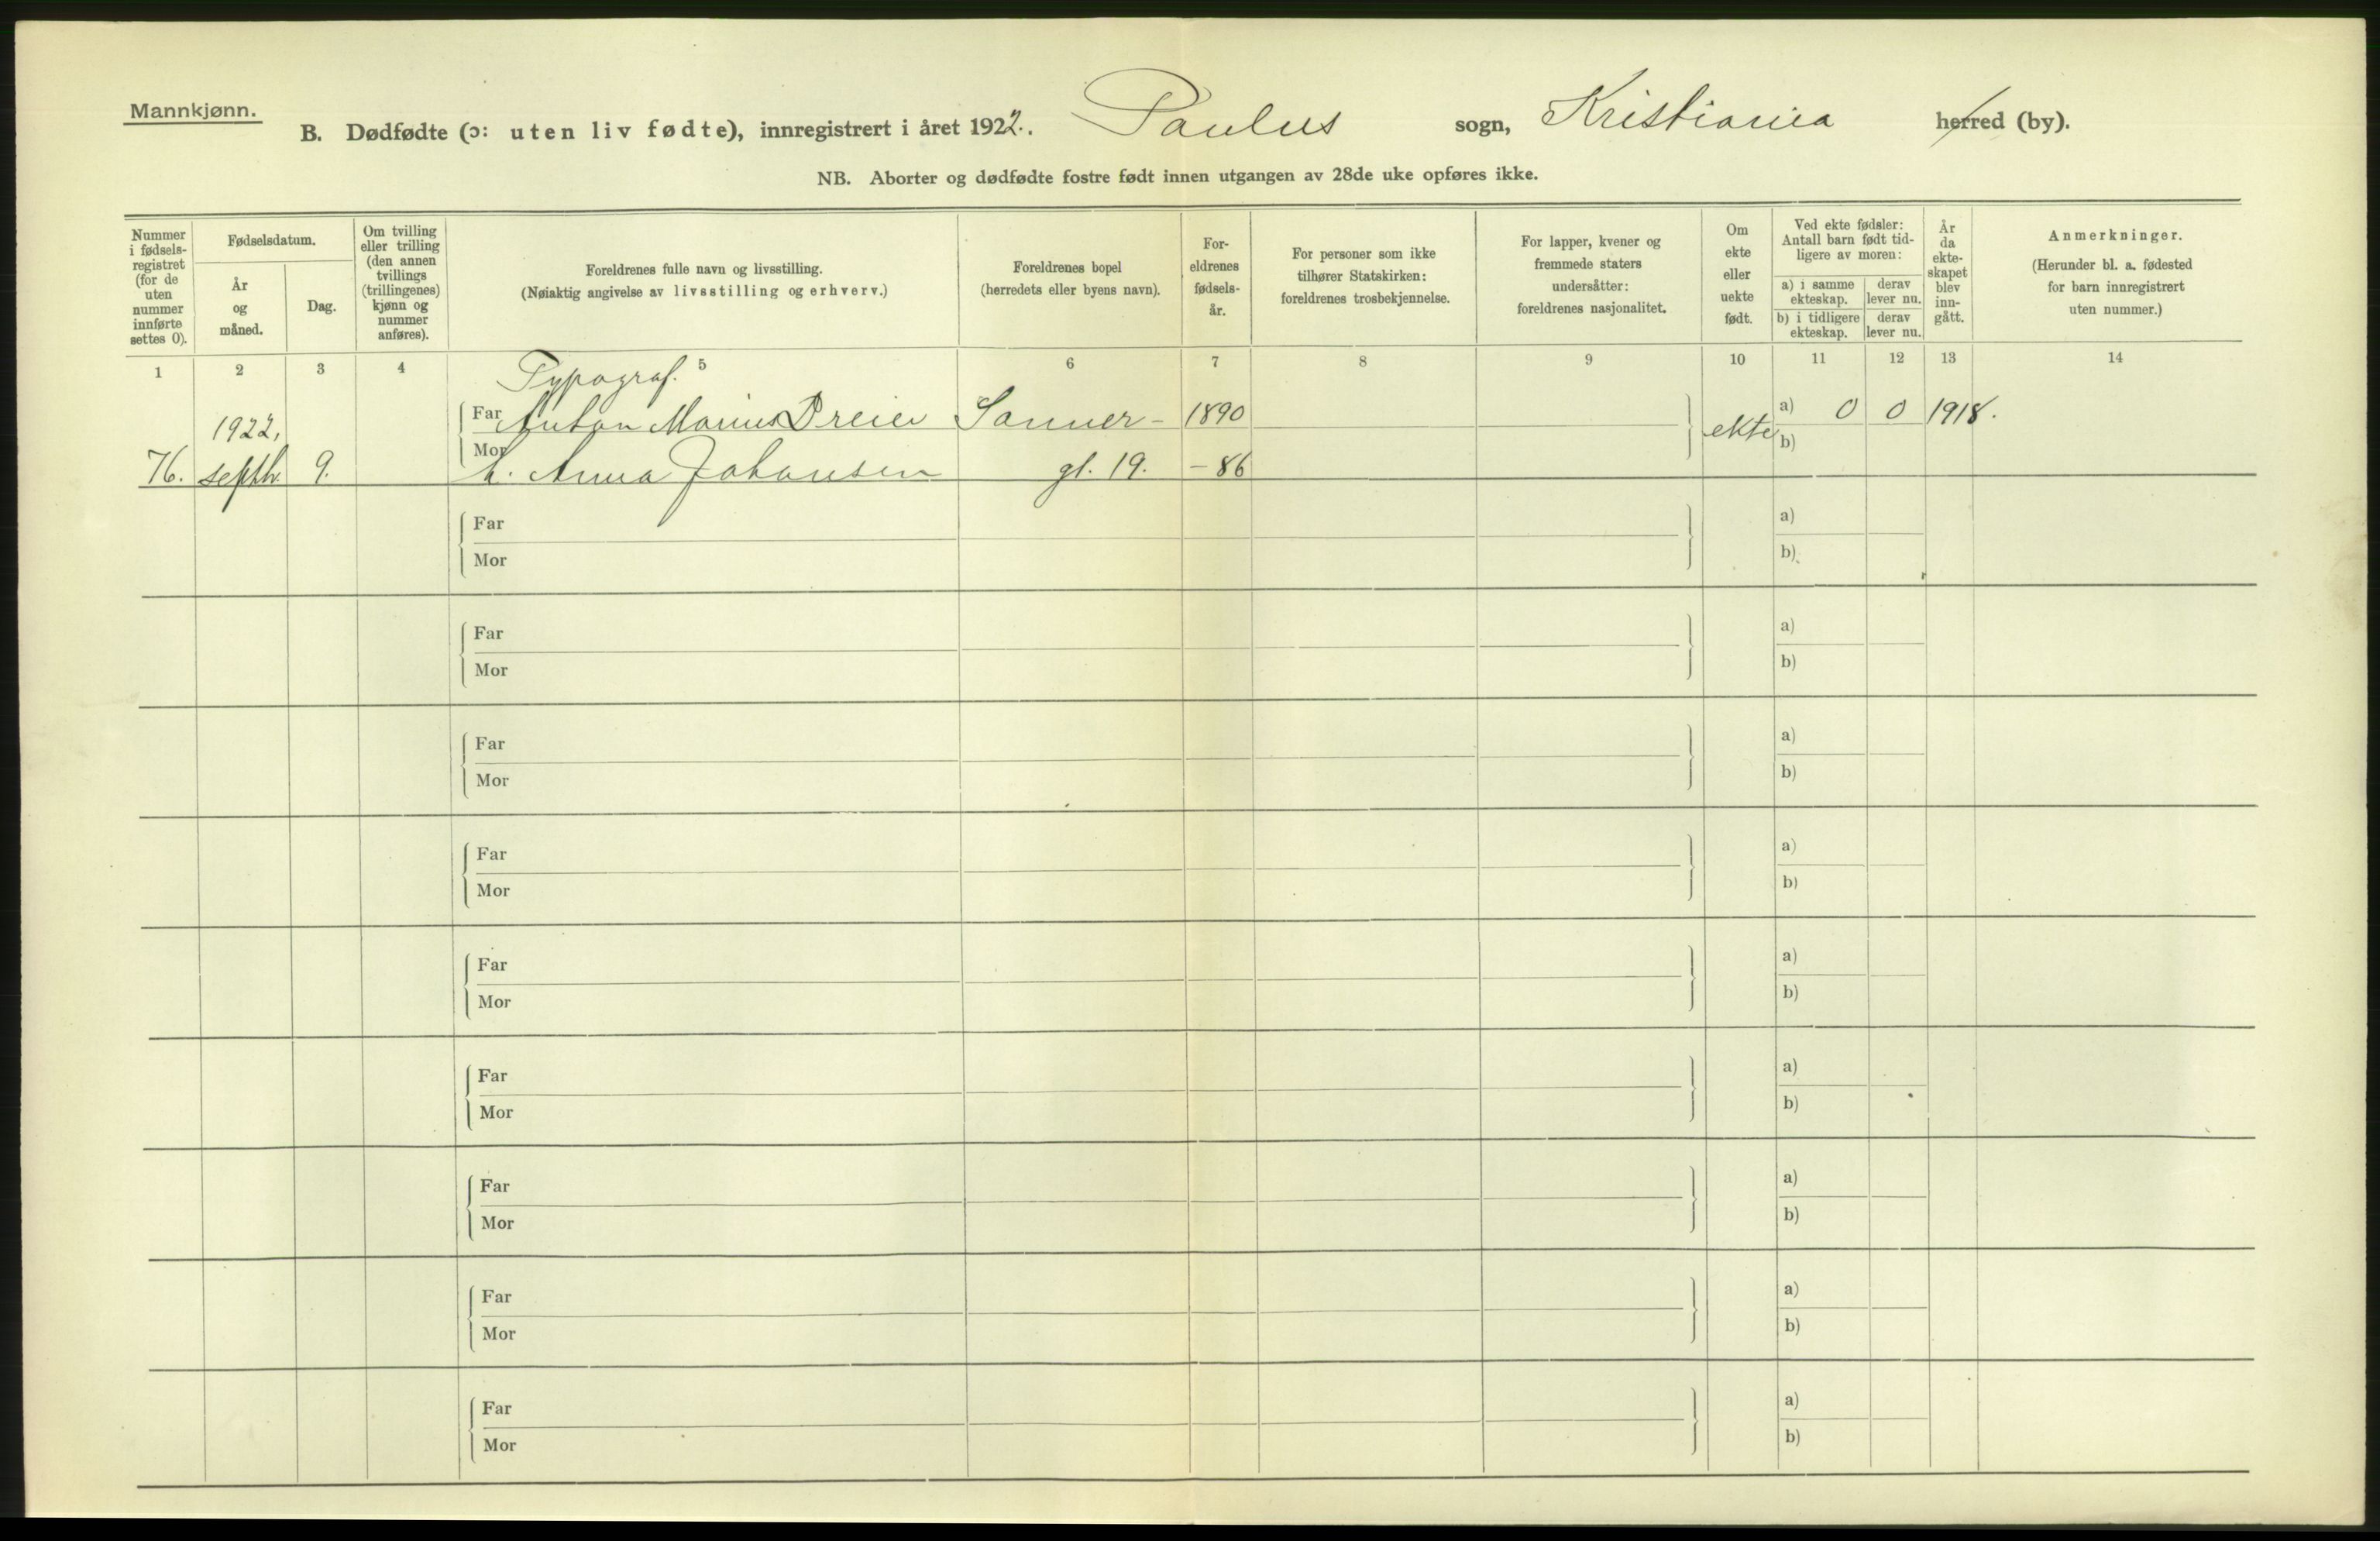 Mannkjønn.
B. Dødfødte (ɔ: uten liv fødte), innregistrert i året 1922. Paulus sogn, Kristiania herred (by).
NB. Aborter og dødfødte fostre født innen utgangen av 28de uke opføres ikke.
Nummer
i fødsels-
registret
(for de
uten
nummer
innførte
settes 0).
Fødselsdatum.
År
og
måned.
Dag.
Om tvilling
eller trilling
(den annen
tvillings
(trillingenes)
kjønn og
nummer
anføres).
Foreldrenes fulle navn og livsstilling.
(Nøiaktig angivelse av livsstilling og erhverv.)
Foreldrenes bopel
(herredets eller byens navn).
For-
eldrenes
fødsels-
år.
For personer som ikke
tilhører Statskirken:
foreldrenes trosbekjennelse.
For lapper, kvener og
fremmede staters
undersåtter:
foreldrenes nasjonalitet.
Om
ekte
eller
uekte
født.
Ved ekte fødsler:
Antall barn født tid-
ligere av moren:
a) i samme
ekteskap.
derav
lever nu.
b) i tidligere
ekteskap.
derav
lever nu.
År
da
ekte-
skapet
blev
inn-
gått.
Anmerkninger.
(Herunder bl. a. fødested
for barn innregistrert
uten nummer.)
1 2 3 4 5 6 7 8 9 10 11 12 13 14
Typograf.
1922, Far Anton Marius Dreier Sanner- 1890 ekte a) 0 0 1918.
76. septb. 9. Mor h. Anna Johansen gt. 19. -86 b)
Far a)
Mor b)
Far a)
Mor b)
Far a)
Mor b)
Far a)
Mor b)
Far a)
Mor b)
Far a)
Mor b)
Far a)
Mor b)
Far a)
Mor b)
Far a)
Mor b)